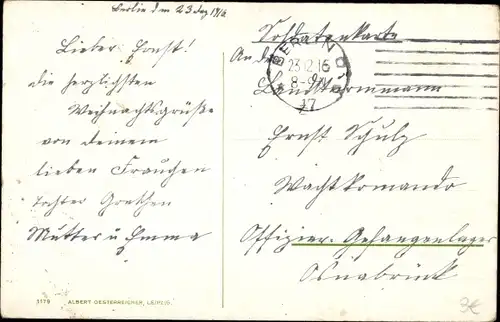 Berlin den 23 Dez 1916
Lieber Ernst!
die herzlichsten
Weihnachtsgrüße
von deinem
lieben Frauchen
Tochter Gretchen
Mutter u Emma
1179 ALBERT OESTERREICHER, LEIPZIG.
Soldatenkarte
BERLIN
23.12.16
8-9
17
An den
Landsturmmann
Ernst Schulz
Wachtkomando
Offizier-Gefangenlager
Osnabrück
3€